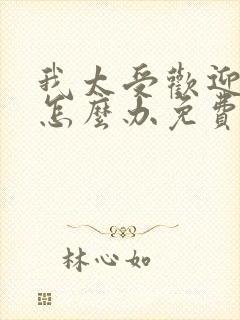 我太受歡迎
怎麼办免費
林心如